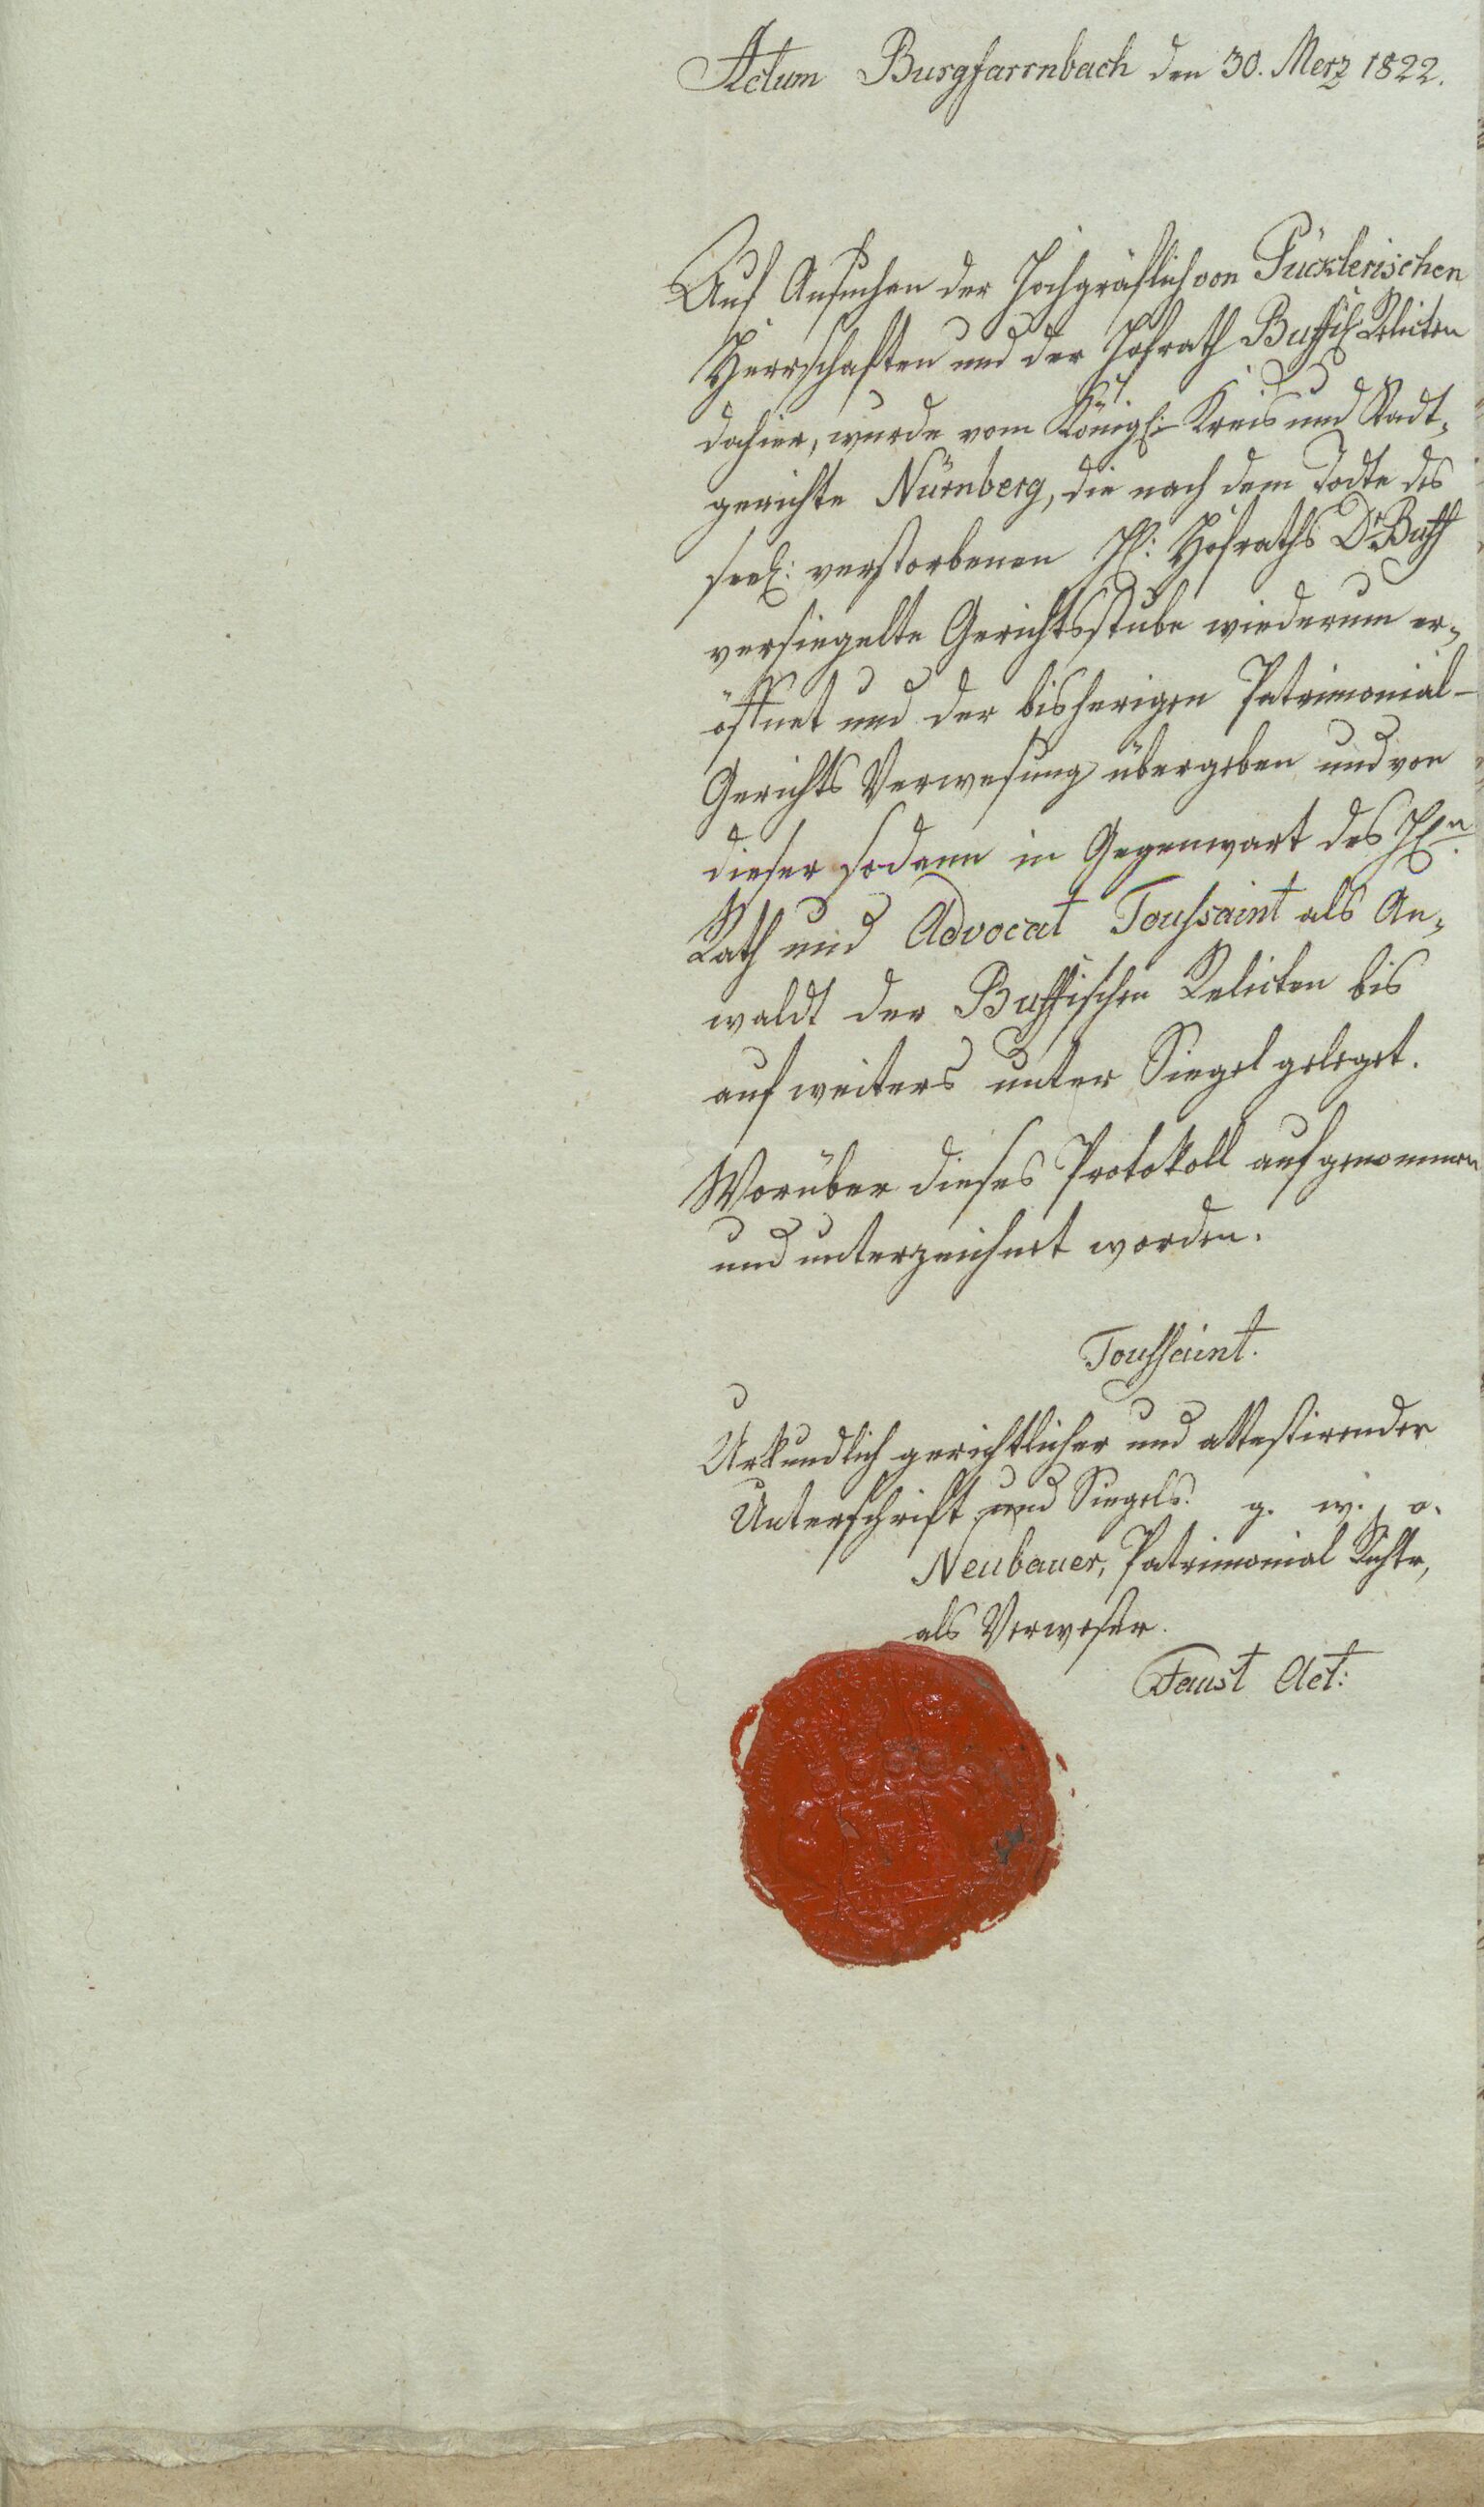 Actum Burgfarrnbach den 30. Merz 1822.
Auf Ansuchen der Hochgräflich von Pücklerischen
Herrschaften und der Hofrath Buffisch. Relicten
dahier, wurde vom Königl: Kreis und Stadt-
gerichte Nürnberg, die nach dem Todte des
seel: verstorbenen H: Hofraths Dr Buff
versiegelte Gerichtsstube wiederum er-
öffnet und der bisherigen Patrimonial-
Gerichts Verwesung übergeben und von
dieser sodann in Gegenwart des Hn.
Rath und Advocat Toussaint als An-
waldt der Buffischen Relicten bis
auf weiters unter Siegel geleget.
Worüber dieses Protokoll aufgenommen
und unterzeichnet worden.
Toussaint.
Urkundlich gerichtlicher und attestirender
Unterschrift und Siegels. g. w. o.
Neubauer, Patrimonial Richter,
als Verweser.
Faust Act: